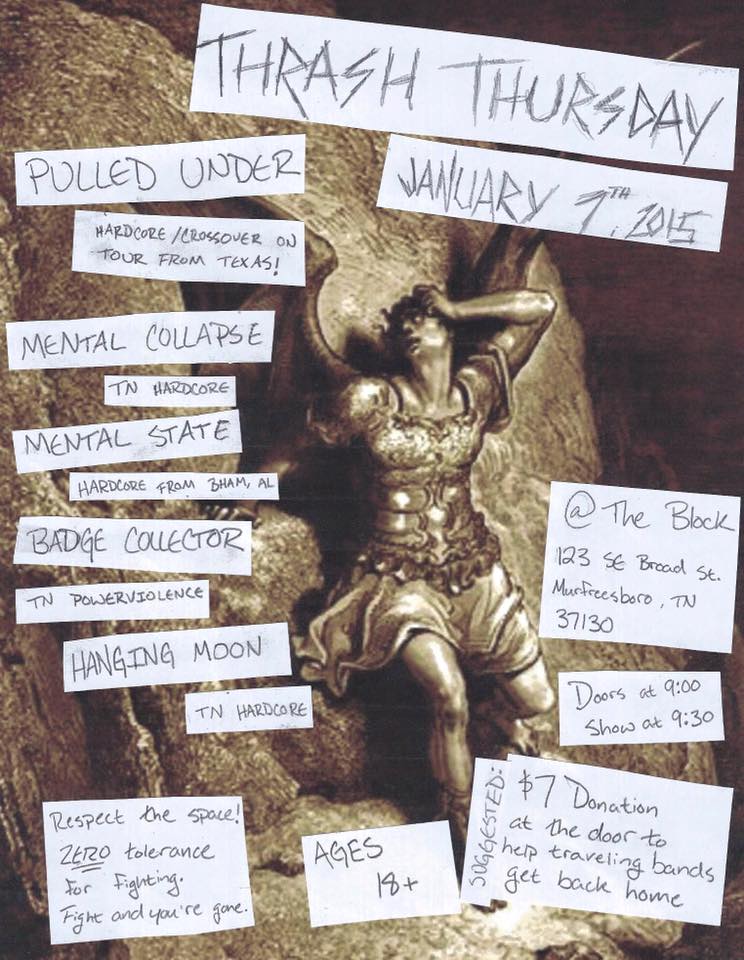 THRASH THURSDAY
JANUARY 7TH, 2015
PULLED UNDER
HARDCORE/CROSSOVER ON
TOUR FROM TEXAS!
MENTAL COLLAPSE
TN HARDCORE
MENTAL STATE
HARDCORE FROM BHAM, AL
BADGE COLLECTOR
TN POWERVIOLENCE
HANGING MOON
TN HARDCORE
@ The Block
123 SE Broad St.
Murfreesboro, TN
37130
Doors at 9:00
Show at 9:30
SUGGESTED:
$7 Donation
at the door to
help traveling bands
get back home
AGES
18+
Respect the space!
ZERO tolerance
for fighting.
Fight and you're gone.